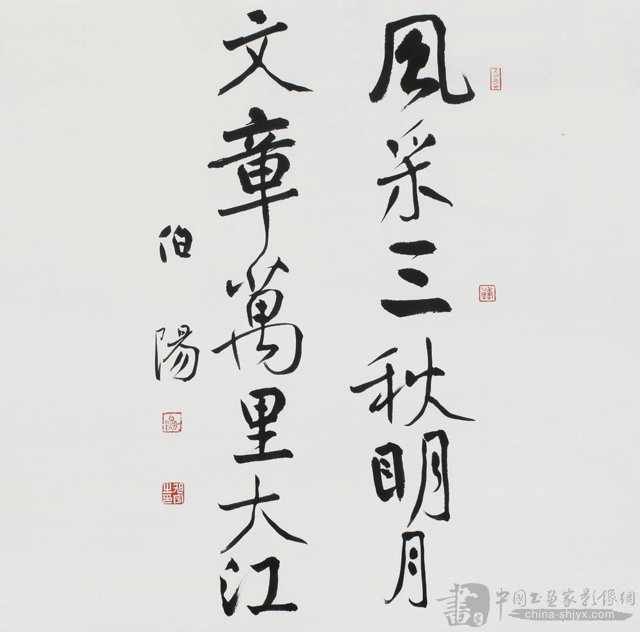 風采三秋明月
文章萬里大江
伯陽
中国书画家影像網
china-shjyx.com